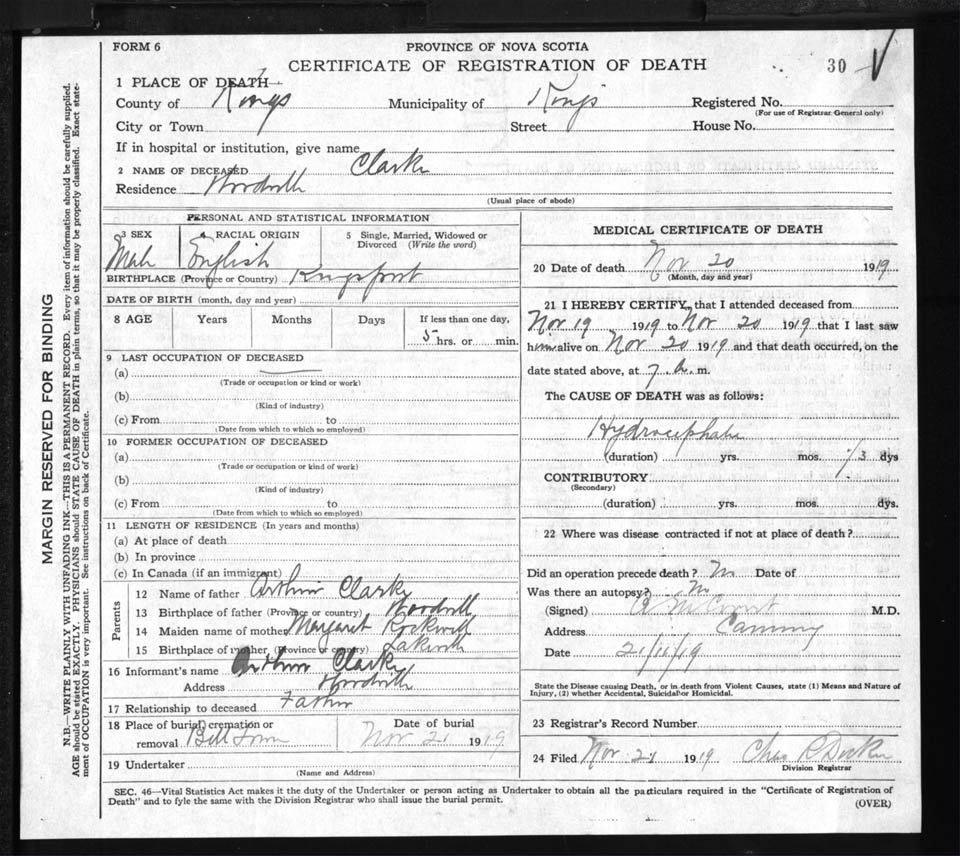 FORM 6
PROVINCE OF NOVA SCOTIA
CERTIFICATE OF REGISTRATION OF DEATH
30
1 PLACE OF DEATH
County of Kings Municipality of Kings Registered No.
(For use of Registrar General only)
City or Town Street House No.
If in hospital or institution, give name
2 NAME OF DECEASED Clarke
Residence Woodville
(Usual place of abode)
PERSONAL AND STATISTICAL INFORMATION
3 SEX 4 RACIAL ORIGIN 5 Single, Married, Widowed or
Divorced (Write the word)
Male English
BIRTHPLACE (Province or Country) Kingsport
DATE OF BIRTH (month, day and year)
8 AGE Years Months Days If less than one day,
5 hrs. or min.
9 LAST OCCUPATION OF DECEASED
(a)
(Trade or occupation or kind or work)
(b)
(Kind of industry)
(c) From to
(Date from which to which so employed)
10 FORMER OCCUPATION OF DECEASED
(a)
(Trade or occupation or kind of work)
(b)
(Kind of industry)
(c) From to
(Date from which to which so employed)
11 LENGTH OF RESIDENCE (In years and months)
(a) At place of death
(b) In province
(c) In Canada (if an immigrant)
Parents
12 Name of father Arthur Clarke
13 Birthplace of father (Province or country) Woodville
14 Maiden name of mother Margaret Rockwell
15 Birthplace of mother (Province or country)
16 Informant's name Arthur Clarke
Address Woodville
17 Relationship to deceased Father
18 Place of burial, cremation or Date of burial
removal Bill Town Nov 21 1919
19 Undertaker
(Name and Address)
MEDICAL CERTIFICATE OF DEATH
20 Date of death Nov 20 1919
(Month, day and year)
21 I HEREBY CERTIFY, that I attended deceased from
Nov 19 1919 to Nov 20 1919 that I last saw
him alive on Nov 20 1919 and that death occurred, on the
date stated above, at 7 a. m.
The CAUSE OF DEATH was as follows:
Hydrocephalus
(duration) yrs. mos. dys
CONTRIBUTORY
(Secondary)
(duration) yrs. mos. dys.
22 Where was disease contracted if not at place of death?
Did an operation precede death? No Date of
Was there an autopsy? No
(Signed) M.D.
Address Canning
Date 21/11/19
State the Disease causing Death, or in death from Violent Causes, state (1) Means and Nature of
Injury, (2) whether Accidental, Suicidal or Homicidal.
23 Registrar's Record Number
24 Filed Nov 21 1919 Chas R
Division Registrar
SEC. 46—Vital Statistics Act makes it the duty of the Undertaker or person acting as Undertaker to obtain all the particulars required in the "Certificate of Registration of
Death" and to fyle the same with the Division Registrar who shall issue the burial permit.
(OVER)
MARGIN RESERVED FOR BINDING
N.B.—WRITE PLAINLY WITH UNFADING INK—THIS IS A PERMANENT RECORD. Every item of information should be carefully supplied.
AGE should be stated EXACTLY. PHYSICIANS should STATE CAUSE OF DEATH in plain terms, so that it may be properly classified. Exact state-
ment of OCCUPATION is very important. See instructions on back of Certificate.